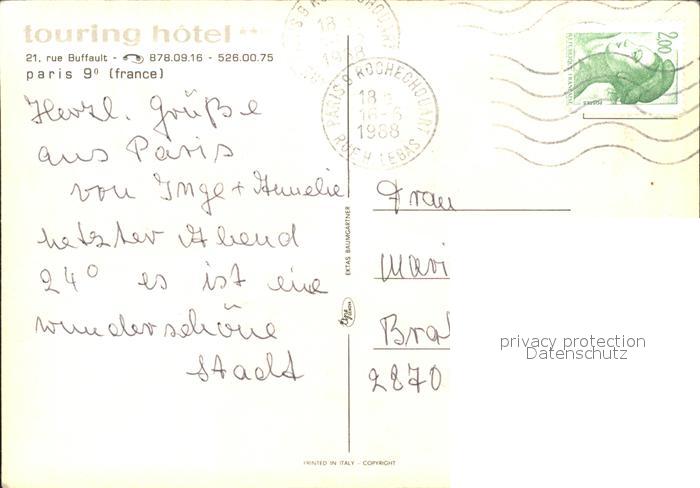 touring hôtel **
21, rue Buffault - 878.09.16 - 526.00.75
paris 9e (france)
Herzl. Grüße
aus Paris
von Inge + Annelie
letzter Abend
24° es ist eine
wunderschöne
Stadt
EKTAS BAUMGARTNER
PRINTED IN ITALY - COPYRIGHT
PARIS 9 ROCHECHOUART
18
16-6
1988
RUE H. LEBAS
2,00
REPUBLIQUE FRANÇAISE
POSTES
Frau
Mari
Bra
2870
privacy protection
Datenschutz